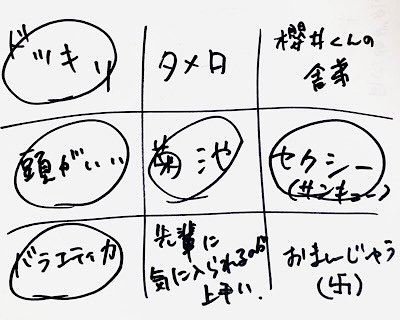 ドッキリ
タメ口
櫻井くんの
舎弟
頭がいい
菊池
セクシー
(サンキュー)
バラエティ力
先輩に
気に入られるのが
上手い.
おまんじゅう
(卐)